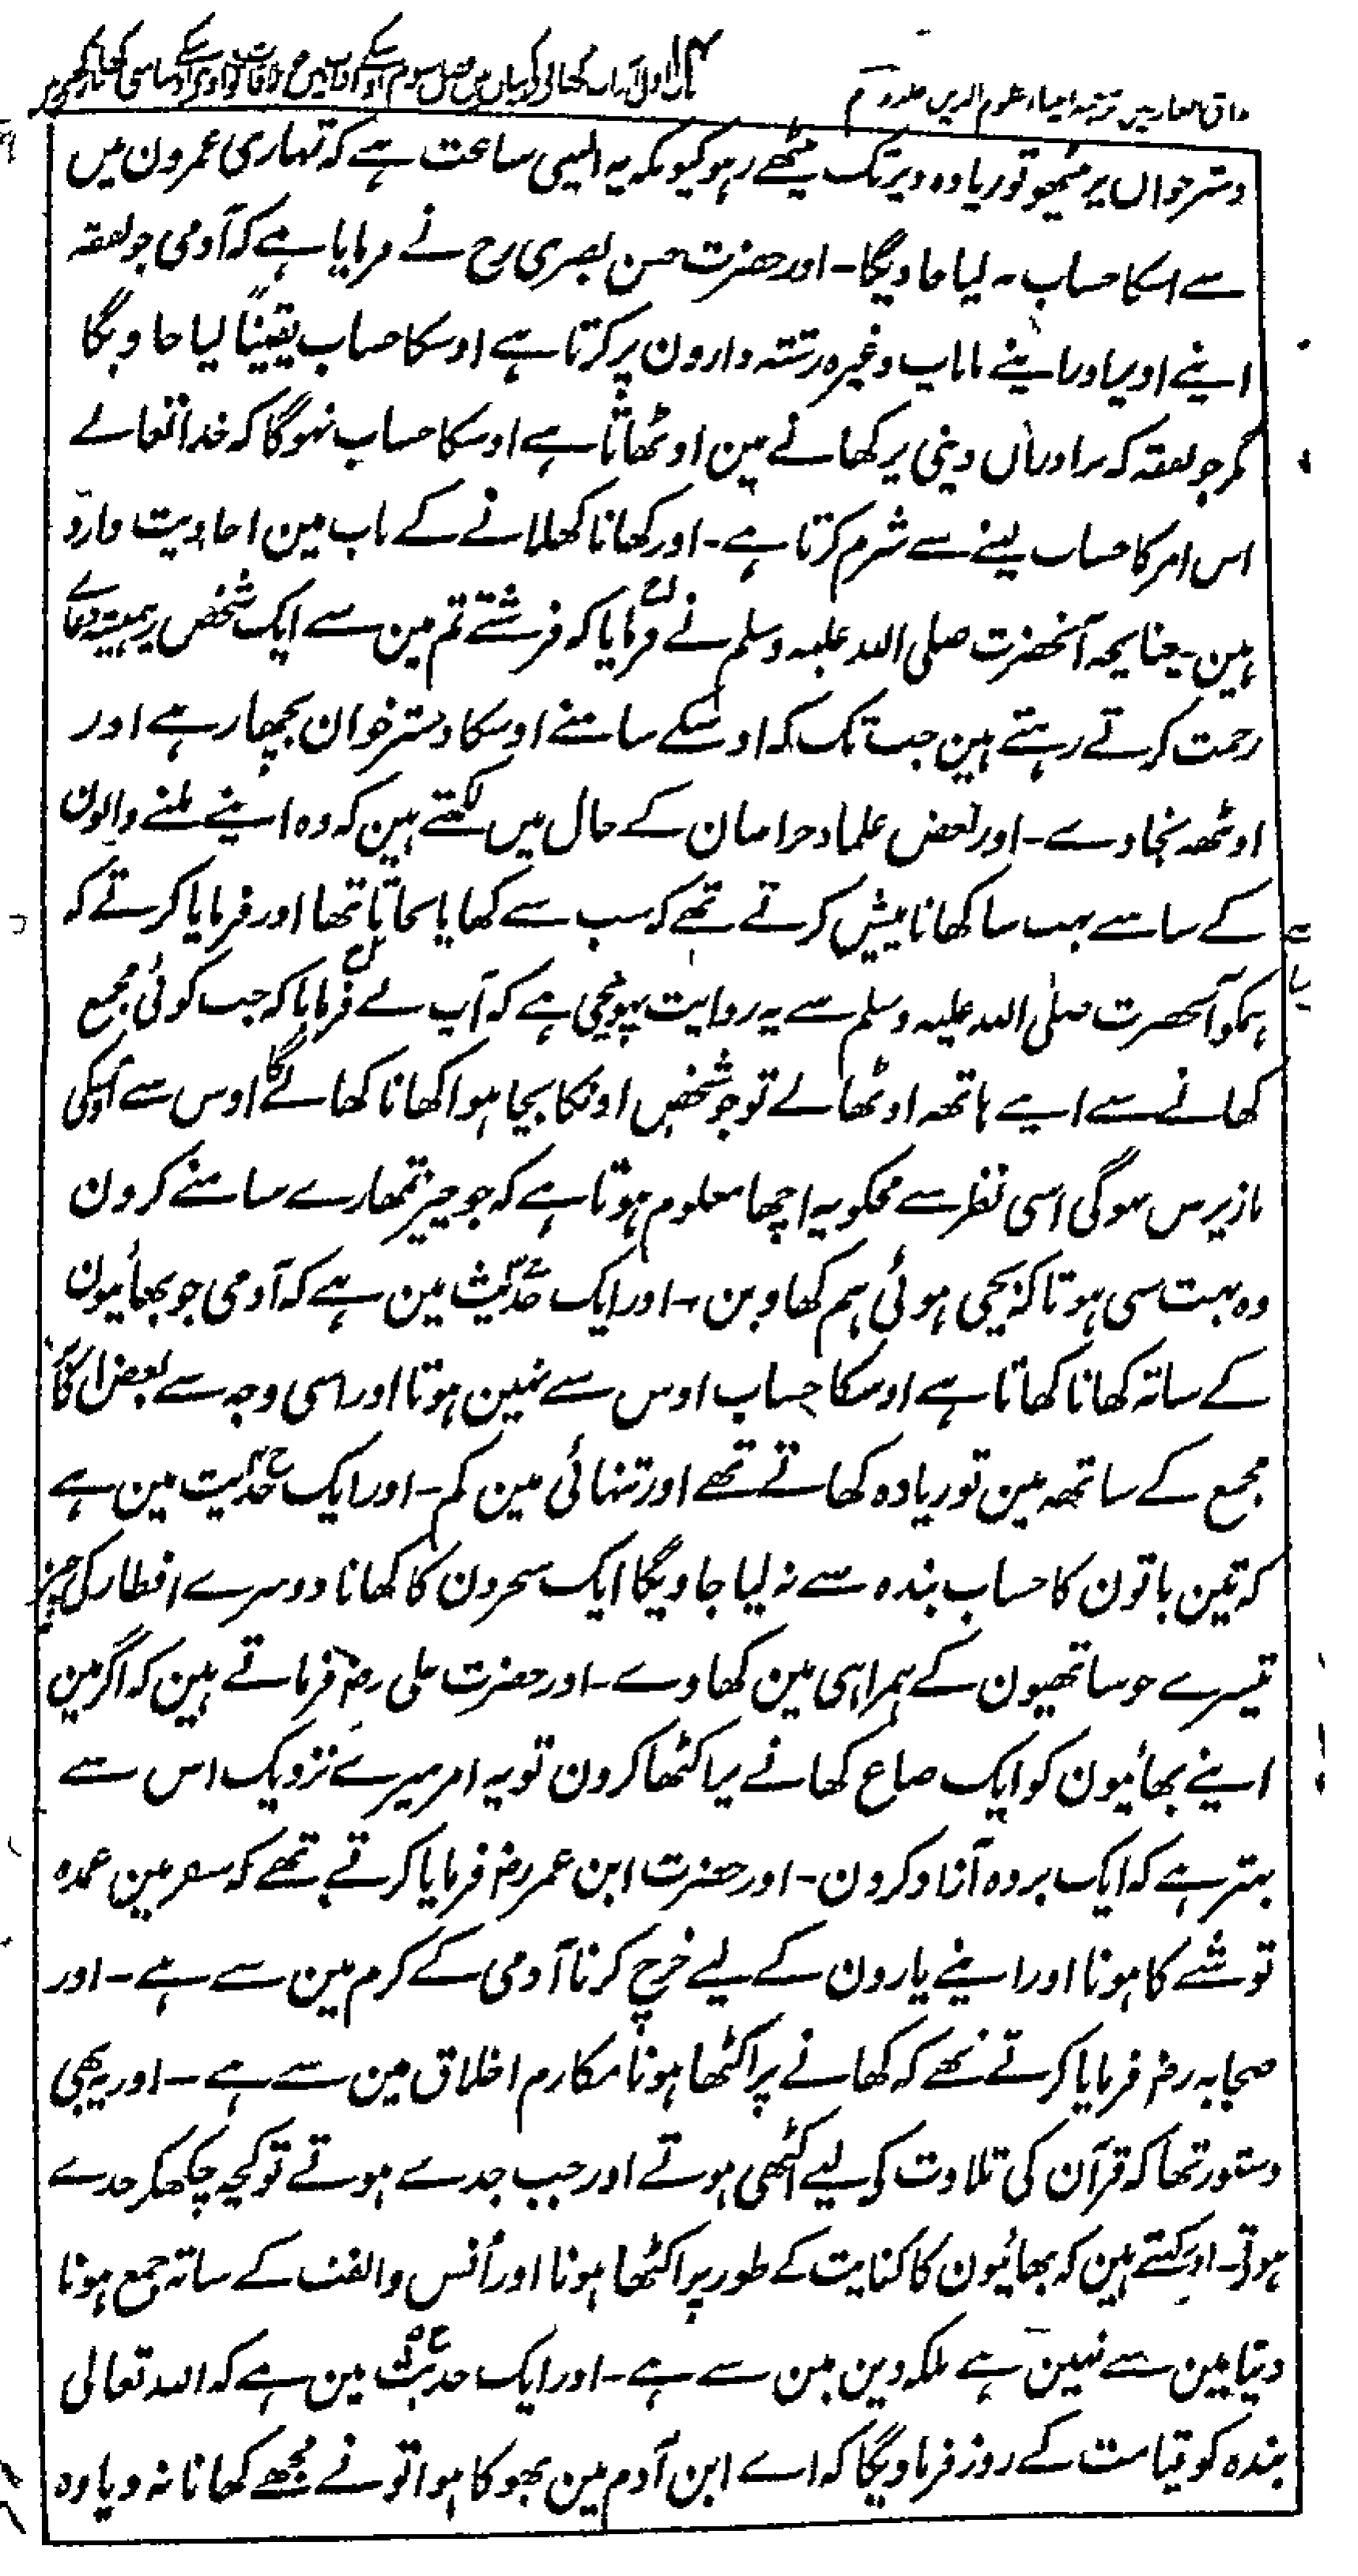 مذاق العارفین ترجمہ احیاء علوم الدین جلد دوم
باب اول آداب کھانے کے بیان میں فصل سوم
دسترخوان پر بیٹھو تو زیادہ دیر تک بیٹھے رہو کیونکہ یہ ایسی ساعت ہے کہ تمہاری عمرون میں
سے اسکا حساب نہ لیا جاویگا۔ اور حضرت حسن بصری رح نے فرمایا ہے کہ آدمی جو نفقہ
اپنے اوپر اور اپنے ماباپ وغیرہ رشتہ دارون پر کرتا ہے اوسکا حساب یقیناً لیا جاویگا
مگر جو نفقہ کہ برادران دینی پر کھانے مین اوٹھاتا ہے اوسکا حساب نہوگا کہ خداتعالے
اس امر کا حساب لینے سے شرم کرتا ہے۔ اور کھانا کھلانے کے باب مین احادیث وارد
ہین۔ چنانچہ آنحضرت صلی اللہ علیہ وسلم نے فرمایا کہ فرشتے تم مین سے ایک شخص پر ہمیشہ دعاے
رحمت کرتے رہتے ہین جب تک کہ اوسکے سامنے اوسکا دسترخوان بچھا رہے اور
اوٹھہ نجاوے۔ اور بعض علماء خراسان کے حال میں لکھتے ہین کہ وہ اپنے ملنے والون
کے سامنے بہت سا کھانا پیش کرتے تھے کہ سب سے کھایا نجاتا تھا اور فرمایا کرتے کہ
ہمکو آنحضرت صلی اللہ علیہ وسلم سے یہ روایت پہونچی ہے کہ آپ نے فرمایا کہ جب کوئی مجمع
کھانے سے اپنے ہاتھہ اوٹھالے تو جو شخص اونکا بچا ہوا کھانا کھالے گا اوس سے اوسکی
بازپرس نہوگی اسی نظر سے مجکو یہ اچھا معلوم ہوتا ہے کہ جو چیز تمھارے سامنے کرون
وہ بہت سی ہو تاکہ بچی ہوئی ہم کھاوین، اور ایک حدیث مین ہے کہ آدمی جو بھائیون
کے ساتہ کھانا کھاتا ہے اوسکا حساب اوس سے نہین ہوتا اور اسی وجہ سے بعض اکابر
مجمع کے ساتھہ مین تو زیادہ کھاتے تھے اور تنہائی مین کم۔ اور ایک حدیث مین ہے
کہ تین باتون کا حساب بندہ سے نہ لیا جاویگا ایک سحرون کا کھانا دوسرے افطار کی چیز
تیسرے جو ساتھیون کے ہمراہی مین کھاوے۔ اور حضرت علی رضہ فرماتے ہین کہ اگر مین
اپنے بھائیون کو ایک صاع کھانے پر اکٹھا کرون تو یہ امر میرے نزدیک اس سے
بہتر ہے کہ ایک بردہ آزاد کرون۔ اور حضرت ابن عمر رضہ فرمایا کرتے تھے کہ سفر مین عمدہ
توشے کا ہونا اور اپنے یارون کے لیے خرچ کرنا آدمی کے کرم مین سے ہے۔ اور
صحابہ رضہ فرمایا کرتے تھے کہ کھانے پر اکٹھا ہونا مکارم اخلاق مین سے ہے۔ اور یہ بھی
دستور تھا کہ قرآن کی تلاوت کی لیے اکٹھی ہوتے اور جب جدے ہوتے تو کچہ چکھکر جدے
ہوتے۔ اور کہتے ہین کہ بھائیون کا کفایت کے طور پر اکٹھا ہونا اور اُنس و الفت کے ساتہ جمع ہونا
دنیا مین سے نہین ہے بلکہ دین مین سے ہے۔ اور ایک حدیث مین ہے کہ اللہ تعالی
بندہ کو قیامت کے روز فرماویگا کہ اے ابن آدم مین بھوکا ہوا تو نے مجھے کھانا نہ دیا وہ